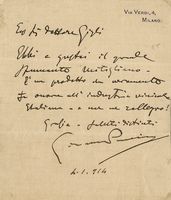 VIA VERDI, 4,
MILANO.
dottore Gigli
Ebbi e gustai il grande
spumante Mirigliano
È un prodotto che veramente
fa onore all'industria vinicola
Italiana e me ne rallegro!
Grazie. Saluti distinti
4.1.914